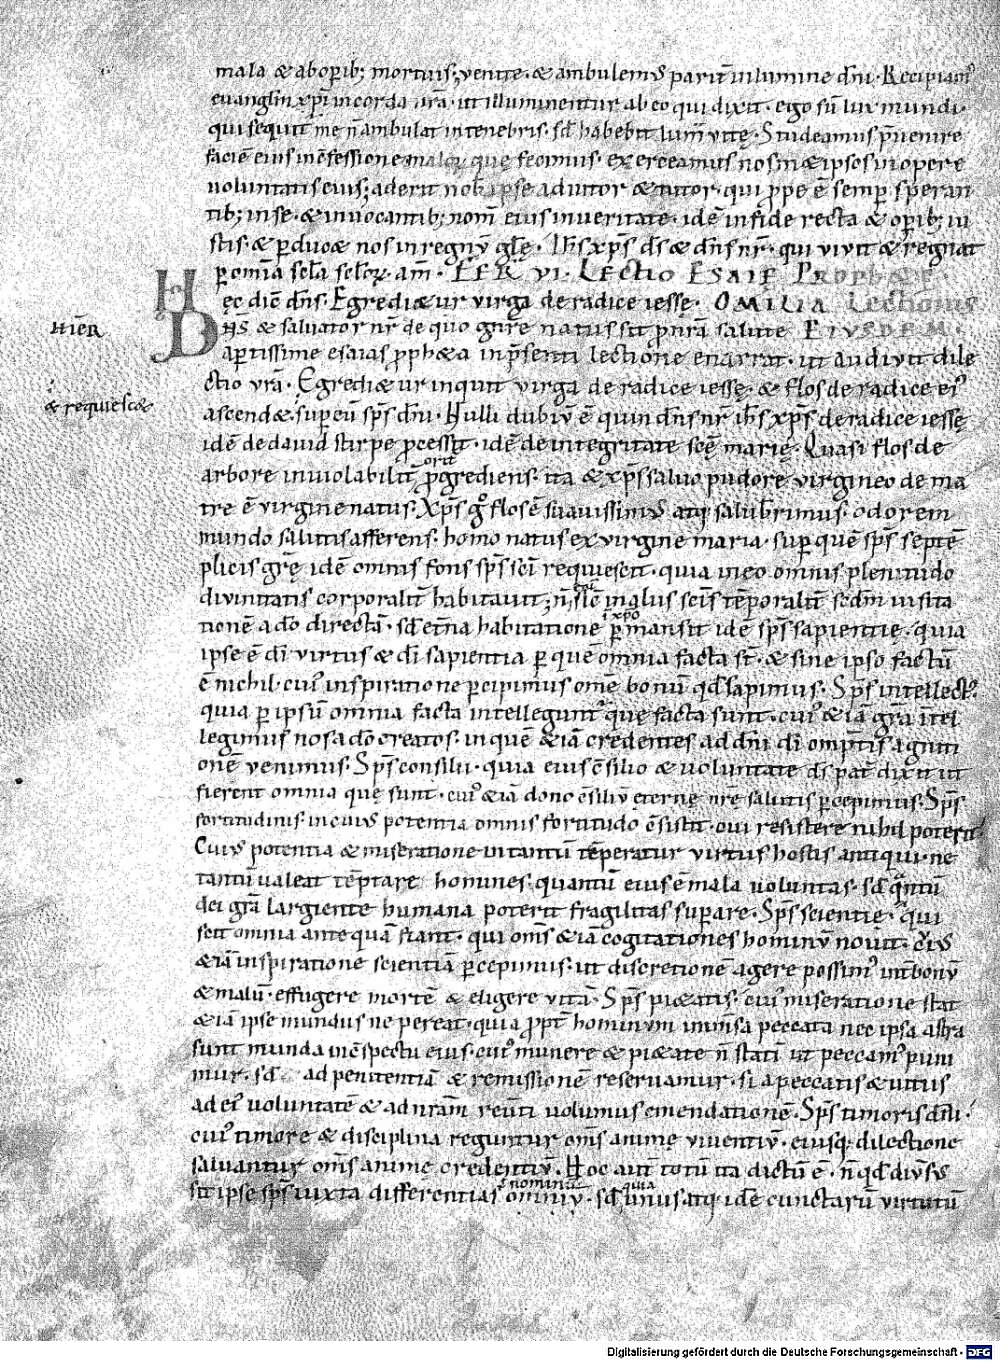 mala & ab opib; mortuis; venite & ambulem' parit in lumine dni. Recipiam'
evangliu xpi in corda nra. ut illuminentur ab eo qui dixit. ego su lux mundi.
qui sequit me n ambulat in tenebris. sd habebit lum vite. Studeamus pvenire
facie eius in cfessione malor que fecimus. exerceamus nosm&ipsos in opere
voluntatis eius; aderit nob ipse adiutor & tutor. qui ppe e semp speran
tib; in se. & invocantib; nom eius in veritate. ide in fide recta & opib; iu
stis. & pducet nos in regnu gle. Ihs xps ds & dns nr. qui vivit & regnat
p omia scla sclor. am. FER VI. LECTIO ESAIE PROPH&E.
Hec die dns. Egredi&ur virga de radice iesse. OMILIA Lectionis
HIER
DNS & salvator nr de quo gnre natus sit p nra salute EIUSDEM.
apertissime esaias proph&a in psenti lectione enarrat. ut audivit dile
ctio vra. Egredi&ur inquit virga de radice iesse. & flos de radice ei'
& requiesc&
ascend&. sup eu sps dni. Nulli dubiu e quin dns nr ihs xps de radice iesse
ide de david stirpe pcessit. ide de integritate sce marie. Quasi flos de
arbore inviolabilit progrediens. ita & xps salvo pudore virgineo de ma
tre e virgine natus. Xps g flos e suavissimus atq; saluberrimus. odorem
mundo salutis afferens. homo natus ex virgine maria. sup que sps septe
plicis gre ide omnis fons sps sci requiescit. quia in eo omnis plenitudo
divinitatis corporalit habitavit; n sic in alus scis teporalit scdm visita
in xpo
tione a do directa. sd etna habitatione pmansit ide sps sapientie. quia
ipse e di virtus & di sapientia p que omnia facta st. & sine ipso factu
e nichil. cui' inspiratione pcipimus ome bonu qd sapimus. Sps intellect'.
quia p ipsu omnia facta intellegunt' que facta sunt. cui' & ia gra intel
legimus nos a do creatos. in que & ia credentes ad dni di omptis agniti
one venimus. Sps consilii. quia eius csilio & voluntate ds pat dixit ut
fierent omnia que sunt. cui' & ia dono csiliu eterne nre salutis pcepimus. Sps
fortitudinis. in cuius potentia omnis fortitudo csistit. cui resistere nihil poterit
Cuius potentia & miseratione in tantu teperatur virtus hostis antiqui. ne
tantu valeat teptare homines. quantu eius e mala voluntas. sd quantu
dei gra largiente humana poterit fragilitas supare. Sps scientie. qui
scit omnia ante qua fiant. qui oms & ia cogitationes hominu novit. Cuius
& ia inspiratione scientia pcepimus. ut discretione agere possim' int bonu
& malu. effugere morte & eligere vita. Sps pi&atis. cui' miseratione stat
& ia ipse mundus ne pereat. quia ppt hominum inmsa peccata nec ipsa astra
sunt munda in cspectu eius. cui' munere & pi&ate n stati ut peccam' puni
mur. sd ad penitentia & remissione reservamur. si a peccatis & vitiis
ad ei' voluntate & ad nram revti volumus emendatione. Sps timoris dni.
cui' timore & disciplina reguntur oms anime viventiu. eiusq; dilectione
salvantur oms anime credentiu. Hoc aut totu ita dictu e. n qd divsus
nominu quia
sit ipse sps iuxta differentias omniu. sd unus atq; ide cunctaru virtutu
Digitalisierung gefördert durch die Deutsche Forschungsgemeinschaft - DFG